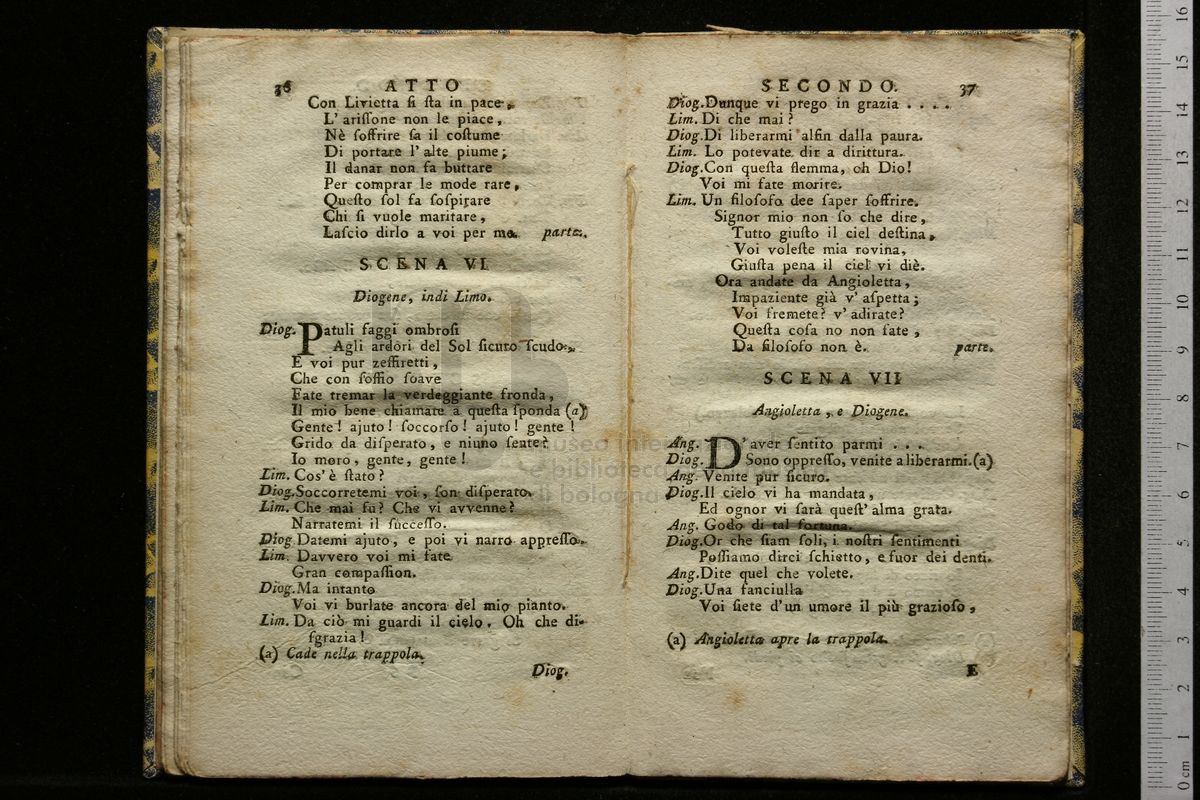 36 ATTO
Con Livietta ſi ſta in pace,
L' ariſſone non le piace,
Nè ſoffrire ſa il coſtume
Di portare l' alte piume;
Il danar non fa buttare
Per comprar le mode rare,
Queſto ſol fa ſoſpirare
Chi ſi vuole maritare,
Laſcio dirlo a voi per me. parte.
SCENA VI
Diogene, indi Limo.
Diog. Patuli faggi ombroſi
Agli ardori del Sol ſicuro ſcudo,
E voi pur zeffiretti,
Che con ſoffio ſoave
Fate tremar la verdeggiante fronda,
Il mio bene chiamate a queſta ſponda (a)
Gente! ajuto! ſoccorſo! ajuto! gente!
Grido da diſperato, e niuno ſente?
Io moro, gente, gente!
Lim. Cos' è ſtato?
Diog. Soccorretemi voi, ſon diſperato.
Lim. Che mai fu? Che vi avvenne?
Narratemi il ſucceſſo.
Diog. Datemi ajuto, e poi vi narro appreſſo.
Lim. Davvero voi mi fate
Gran compaſſion.
Diog. Ma intanto
Voi vi burlate ancora del mio pianto.
Lim. Da ciò mi guardi il cielo. Oh che di-
ſgrazia!
(a) Cade nella trappola.
Diog.
SECONDO. 37
Diog. Dunque vi prego in grazia . . . .
Lim. Di che mai?
Diog. Di liberarmi alfin dalla paura.
Lim. Lo potevate dir a dirittura.
Diog. Con queſta flemma, oh Dio!
Voi mi fate morire.
Lim. Un filoſofo dee ſaper ſoffrire.
Signor mio non ſo che dire,
Tutto giuſto il ciel deſtina,
Voi voleſte mia rovina,
Giuſta pena il ciel vi diè.
Ora andate da Angioletta,
Impaziente già v' aſpetta;
Voi fremete? v' adirate?
Queſta coſa no non fate,
Da filoſofo non è. parte.
SCENA VII
Angioletta, e Diogene.
Ang. D'aver ſentito parmi . . .
Diog. Sono oppreſſo, venite a liberarmi.(a)
Ang. Venite pur ſicuro.
Diog. Il cielo vi ha mandata,
Ed ognor vi ſarà queſt' alma grata.
Ang. Godo di tal fortuna.
Diog. Or che ſiam ſoli, i noſtri ſentimenti
Poſſiamo dirci ſchietto, e fuor dei denti.
Ang. Dite quel che volete.
Diog. Una fanciulla
Voi ſiete d'un umore il più grazioſo,
(a) Angioletta apre la trappola.
E
museo
e biblioteca
di bologna
0 cm 1 2 3 4 5 6 7 8 9 10 11 12 13 14 15 16